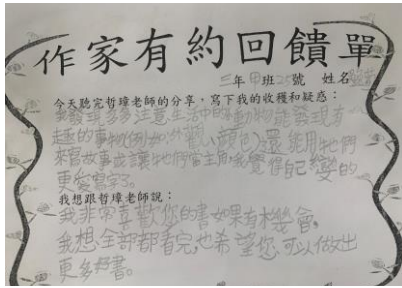 作家有約回饋單
三年甲班25號 姓名
今天聽完哲璋老師的分享,寫下我的收穫和疑惑:
我發現多多注意生活中的動物能發現有
趣的事物(例如外觀、顏色)還能用牠們
來寫故事或讓牠們當主角我覺得自己變的
更愛寫字了。
我想跟哲璋老師說:
我非常喜歡您的書如果有機會,
我想全部都看完,也希望您可以做出
更多好書。